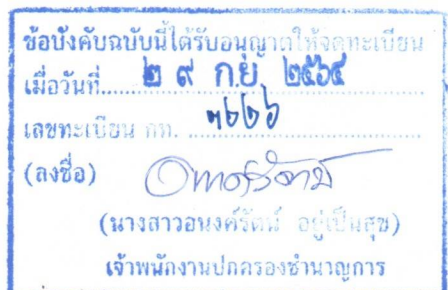 ข้อบังคับฉบับนี้ได้รับอนุญาตให้จดทะเบียน
เมื่อวันที่..... ๒ ๙ ก.ย. ๒๕๖๔
เลขทะเบียน กท. ๓๖๖๖
(ลงชื่อ)
(นางสาวอนงค์รัตน์ อยู่เป็นสุข)
เจ้าพนักงานปกครองชำนาญการ